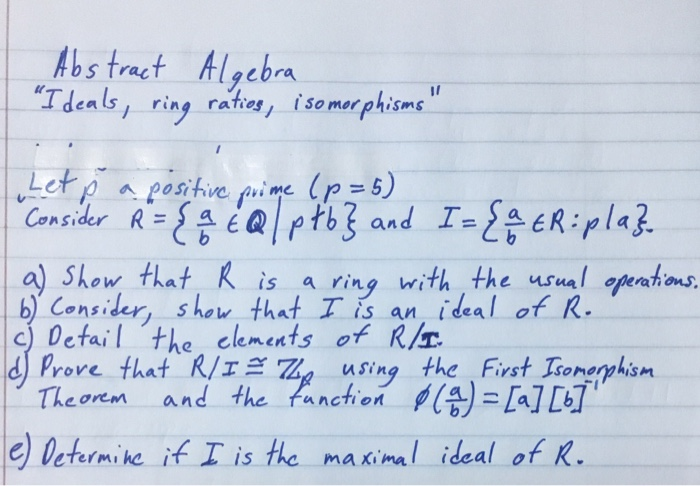 Abstract Algebra
"Ideals, ring ratios, isomorphisms"
Let p a positive prime (p = 5)
Consider R = {a/b ∈ Q | p∤b} and I = {a/b ∈ R : p|a}.
a) Show that R is a ring with the usual operations.
b) Consider, show that I is an ideal of R.
c) Detail the elements of R/I.
d) Prove that R/I ≅ ℤp using the First Isomorphism
Theorem and the function ϕ(a/b) = [a][b]⁻¹
e) Determine if I is the maximal ideal of R.